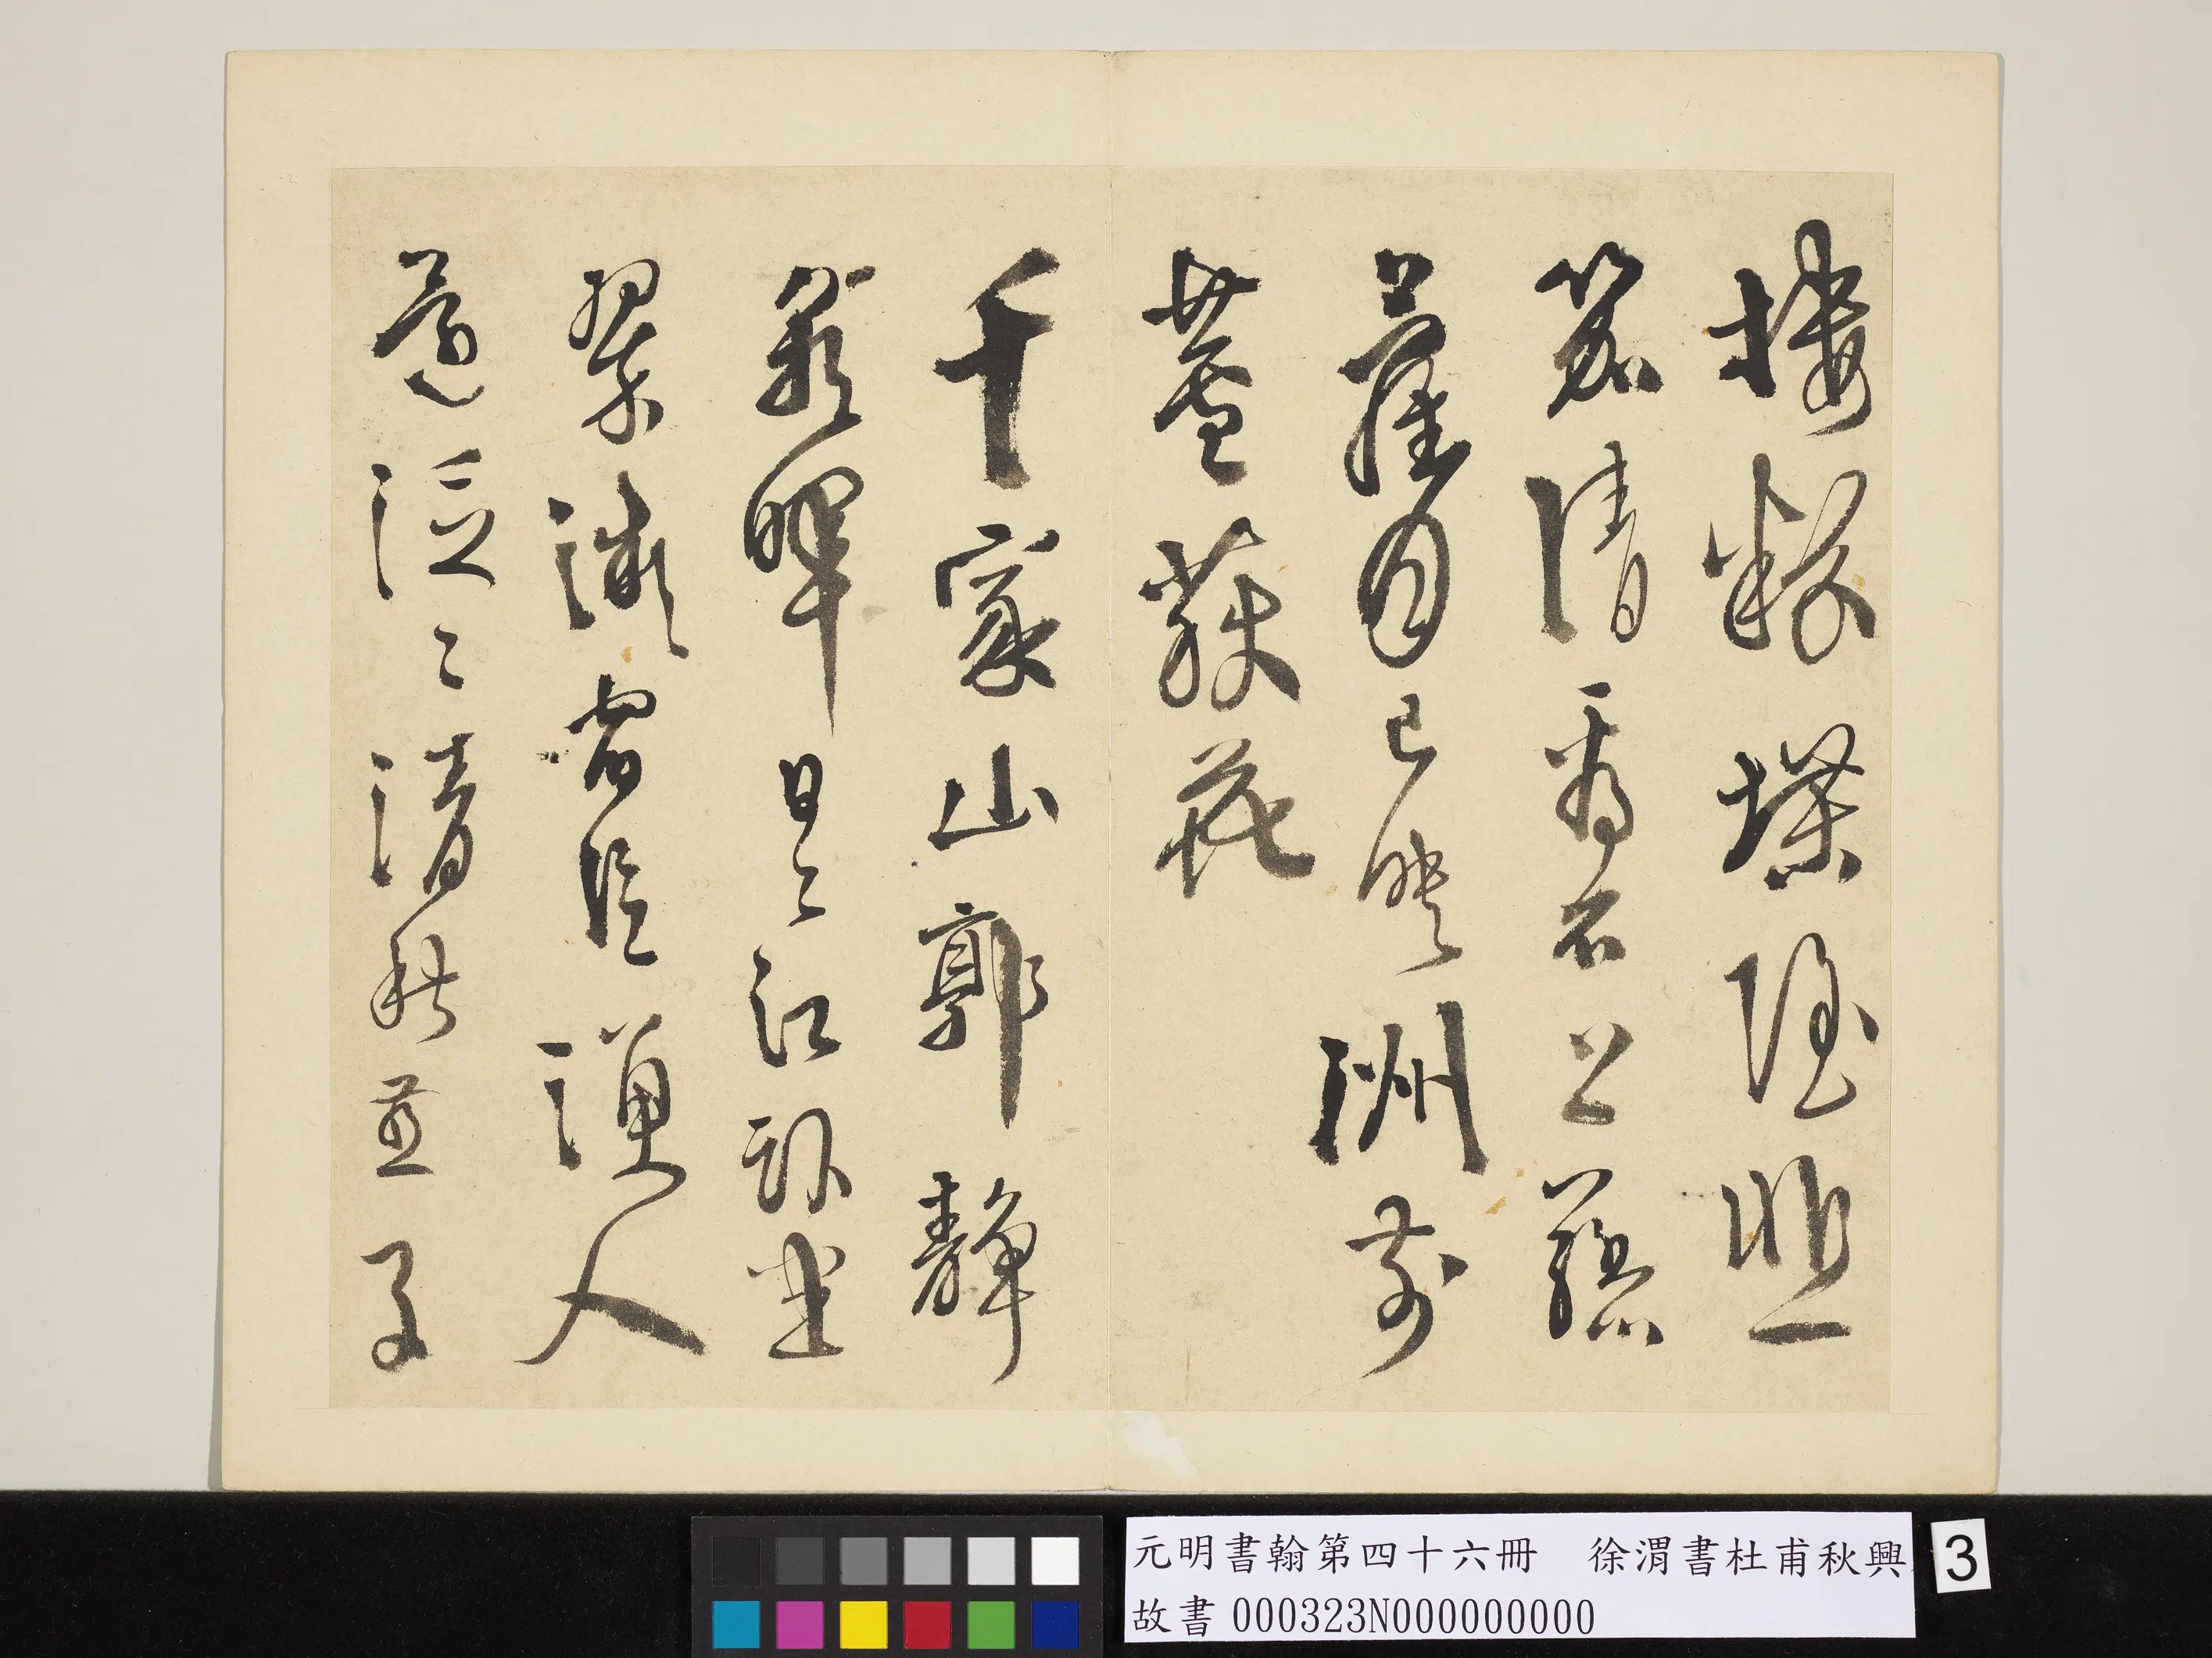 樓粉堞隱悲
笳請看石上藤
蘿月已映洲前
蘆荻花
千家山郭靜
朝暉日〻江坐
翠微宿信漁人
還泛〻清秋燕子
元明書翰第四十六冊 徐渭書杜甫秋興
故書 000323N000000000
3